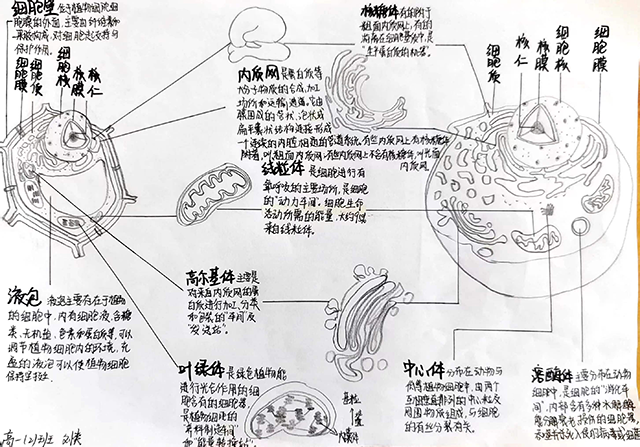 细胞壁 位于植物细胞细
胞膜的外面,主要由纤维素和
果胶构成,对细胞起支持与
保护作用。
细胞膜
细胞质
细胞核
核膜
核仁
核糖体 有的附于
粗面内质网上,有的
游离在细胞质中,是
“生产蛋白质的机器”。
细胞质
核仁
核膜
细胞核
细胞膜
内质网 是蛋白质等
大分子物质的合成、加工
场所和运输通道。它由
膜围成的管状、泡状或
扁平囊状结构连接形成
一个连续的内腔相通的管道系统。有些内质网上有核糖体
附着,叫粗面内质网;有些内质网上不含有核糖体,叫光面
内质网。
线粒体 是细胞进行有
氧呼吸的主要场所,是细胞
的“动力车间”。细胞生命
活动所需的能量,大约95%
来自线粒体。
高尔基体 主要是
对来自内质网的蛋
白质进行加工、分类
和包装的“车间”及
“发送站”。
液泡 液泡主要存在于植物
的细胞中,内有细胞液,含糖
类、无机盐、色素和蛋白质等,可以
调节植物细胞内的环境,充
盈的液泡可以使植物细胞
保持坚挺。
叶绿体 是绿色植物能
进行光合作用的细
胞含有的细胞器,
是植物细胞的
“养料制造车间”
和“能量转换站”。
基粒
中心体 分布在动物与
低等植物细胞中,由两个
互相垂直排列的中心粒及
周围物质组成,与细胞
的有丝分裂有关。
溶酶体 主要分布在动物
细胞中,是细胞的“消化车
间”,内部含有多种水解酶,
能分解衰老、损伤的细胞器,
高一(2)班